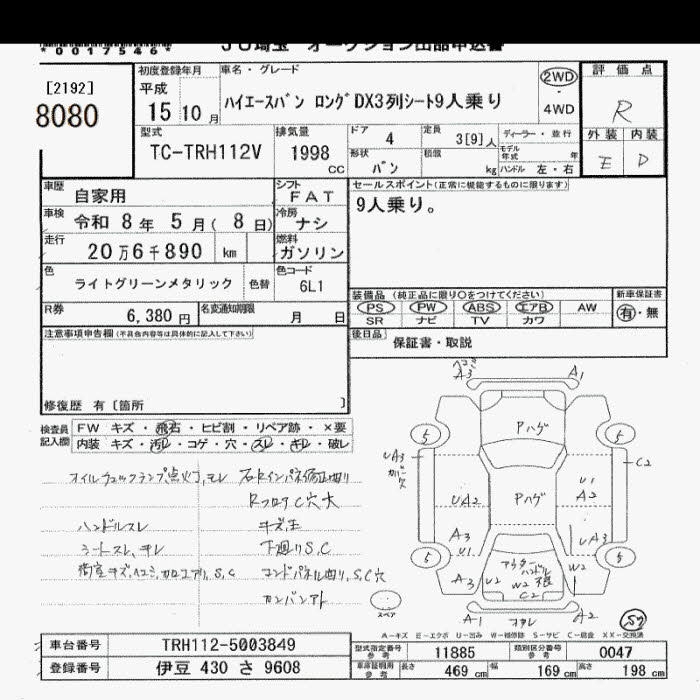 *0017546*
JU埼玉 オークション出品申込書
[2192]
8080
初度登録年月
平成
15 10 月
車名・グレード
ハイエースバン ロングDX3列シート9人乗り
2WD
・
4WD
評価点
R
外装 内装
E D
型式
TC-TRH112V
排気量
1998 CC
ドア 4
定員 3[9]人
形状 バン
積載 kg
ディーラー・並行
モデル年式 年
ハンドル 左・右
車歴 自家用
シフト FAT
車検 令和 8年 5月( 8日)
冷房 ナシ
走行 20万6千890 km
燃料 ガソリン
色 ライトグリーンメタリック 色替
色コード 6L1
R券 6,380 円
名変通知期限 月 日
セールスポイント(正常に機能するものに限ります)
9人乗り。
装備品 (純正品に限り○をつけてください)
PS PW ABS エアB AW
SR ナビ TV カワ
新車保証書
有・無
後日品 保証書・取説
注意事項申告欄(不具合内容等は具体的に記入して下さい)
修復歴 有 [箇所 ]
検査員記入欄
FW キズ・飛石・ヒビ割・リペア跡・×要
内装 キズ・汚レ・コゲ・穴・スレ・キレ・破レ
オイルチェックランプ点灯,モレ
Rフロア C穴大
ハンドルスレ
キズ主
シートスレ、キレ
下廻りS,C
コアパネル廻り,S,C穴
カンバンアト
A3
A1
Pハゲ
5
5
UA3
C2
UA2
Pハゲ
U1
A2
A3
U1
UA3
5
5
A3
U2
W2
アウターハンドル
W2
C2
A1
A2
スペア
A-キズ E-エクボ U-凹み W-補修跡 S-サビ C-腐食 XX-交換済
車台番号 TRH112-5003849
登録番号 伊豆 430 さ 9608
型式指定番号 参考 11885
類別区分番号 参考 0047
車庫証明用 参考 長さ 469 cm 幅 169 cm 高さ 198 cm